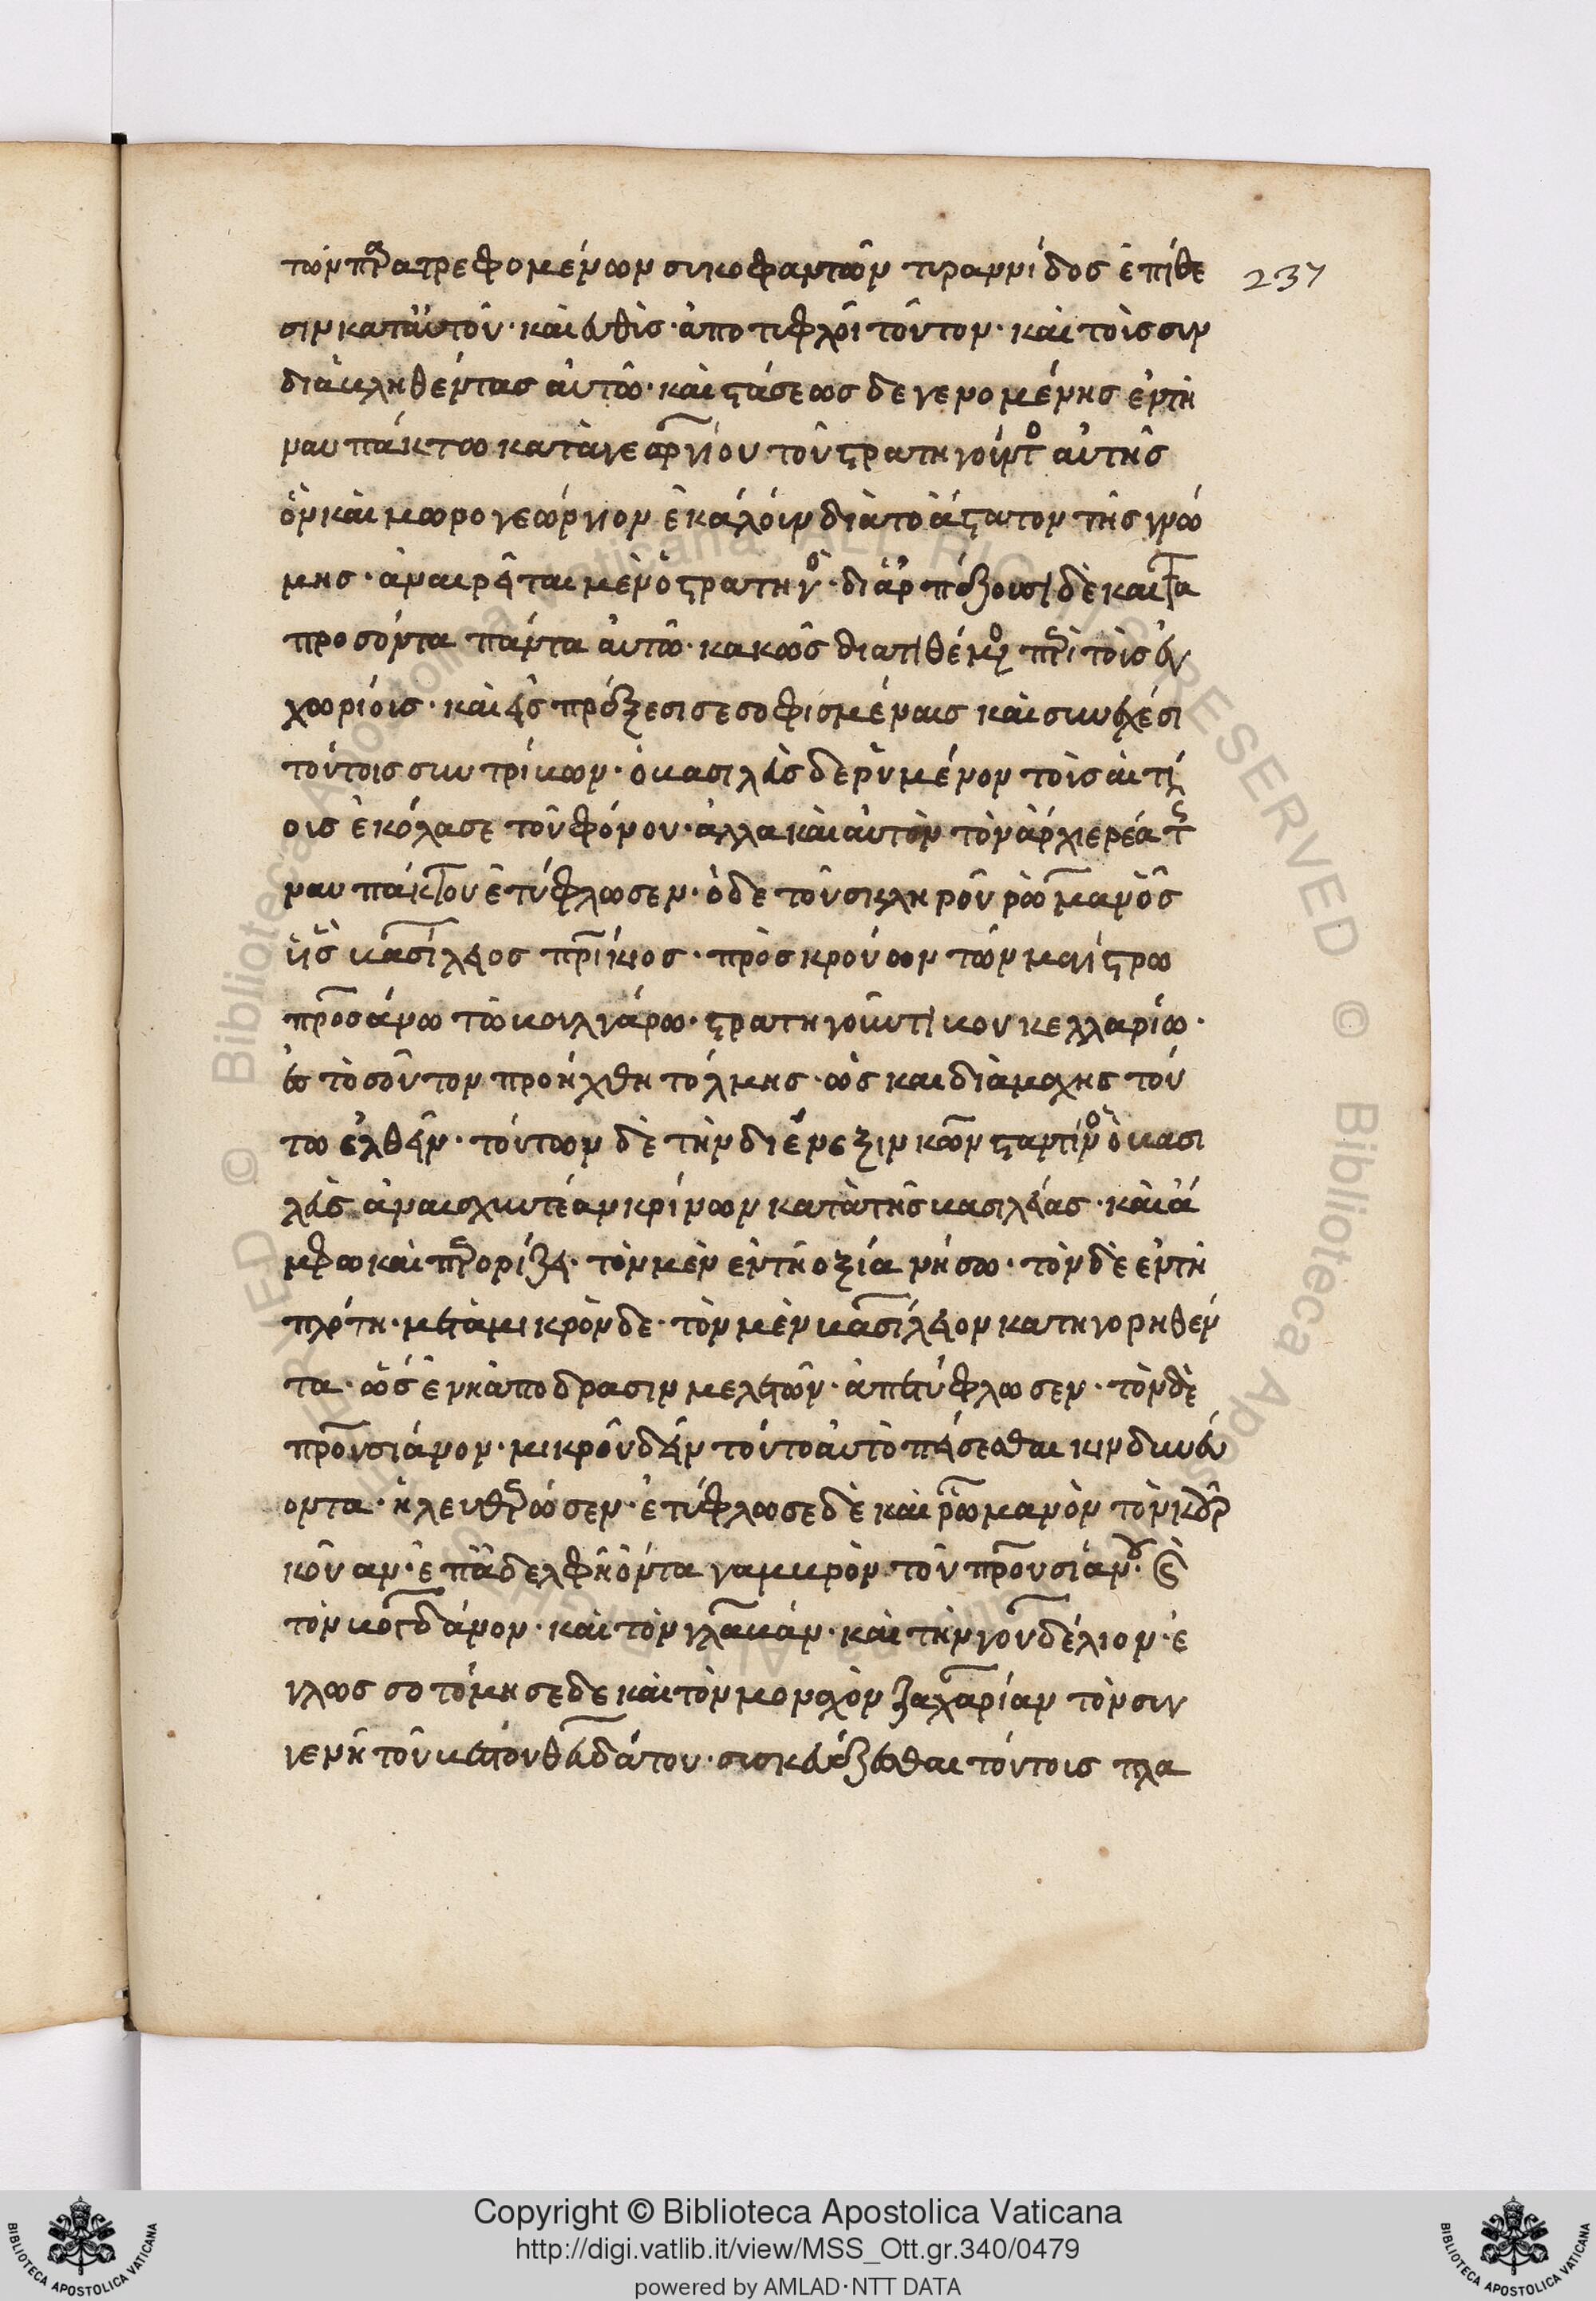 τῶν παρατρεφομένων συκοφαντῶν τυραννίδος ἐπίθε
σιν κατ αὐτοῦ· καὶ εὐθὺς· ἀποτυφλοῖ τοῦτον· καὶ τοῖς συν
διαβληθέντας αὐτῶ· καὶ στάσεως δε γενομένης ἐν τῆ
ναυπάκτω κατὰ γεωργίου τοῦ στρατηγοῦντος αὐτῆς
ὃν καὶ μωρογεώργιον ἐκάλουν διὰ τὸ ἄστατον τῆς γνώ
μης· ἀναιρεῖται μὲν ὁ στρατηγὸς· διαρπάζουσι δὲ καὶ τὰ
προσόντα πάντα αὐτῶ· κακῶς διατιθέμενος περὶ τοῖς ἐν
χωρίοις· καὶ εἰς πράξεσι σεσοφισμέναις καὶ συνεχέσι
τούτοις συντρίβων· ὁ βασιλεὺς δε οὐ μόνον τοῖς αἰτί
οις ἐκόλασε τοῦ φόνου· ἀλλα καὶ αὐτὸν τὸν ἀρχιερέα τῆς
ναυπάκτου ἐτύφλωσεν· ὁ δε τοῦ σκληροῦ ῥωμανοῦ
υἱὸς βασίλειος πατρίκιος· πρὸσκρούων τῶν μαγίστρω
προσάνω τῶ βουλγάρω· στρατηγοῦντι βουκελλαρίω·
ἐς τὸσοῦτον προήχθη τόλμης· ὡς και διὰ μάχης τού
τω ἐλθεῖν· τούτων δὲ τὴν διένεξιν κωνσταντίνος ὁ βασι
λεὺς ἀναισχυντίαν κρίνων κατὰ τῆς βασιλείας· καὶ ἄ
μφω καὶ περορίζει· τὸν μὲν ἐν τῆ ὀξία νήσω· τὸν δὲ ἐν τῆ
πλάτη· μετὰ μικρὸν δε· τὸν μὲν βασίλειον κατηγορηθέν
τα· ὡς ἐνκαποδρασιν μελετῶν· ἀπετύφλωσεν· τὸν δὲ
προυσιάνον· μικροῦ δεῖν τοῦτο αὐτὸ πείσεσθαι κινδυνεύ
οντα· ἠλευθέρωσεν· ἐτύφλωσε δὲ καὶ ῥωμανὸν τὸν κουρ
κούαν· ἐπ ἀδελφῆ ὄντα γαμβρὸν τοῦ προυσιάνου· καὶ
τὸν βογδάνον· καὶ τὸν γλαβάν· καὶ τὴν γουδέλιον· ἐ
γλωσσοτόμησε δε καὶ τὸν μοναχὸν ζαχαρίαν τὸν συγ
γενῆ τοῦ βέστου θευδάτου· συσκευάζεσθαι τούτοις πλα
237
Copyright © Biblioteca Apostolica Vaticana
http://digi.vatlib.it/view/MSS_Ott.gr.340/0479
powered by AMLAD·NTT DATA